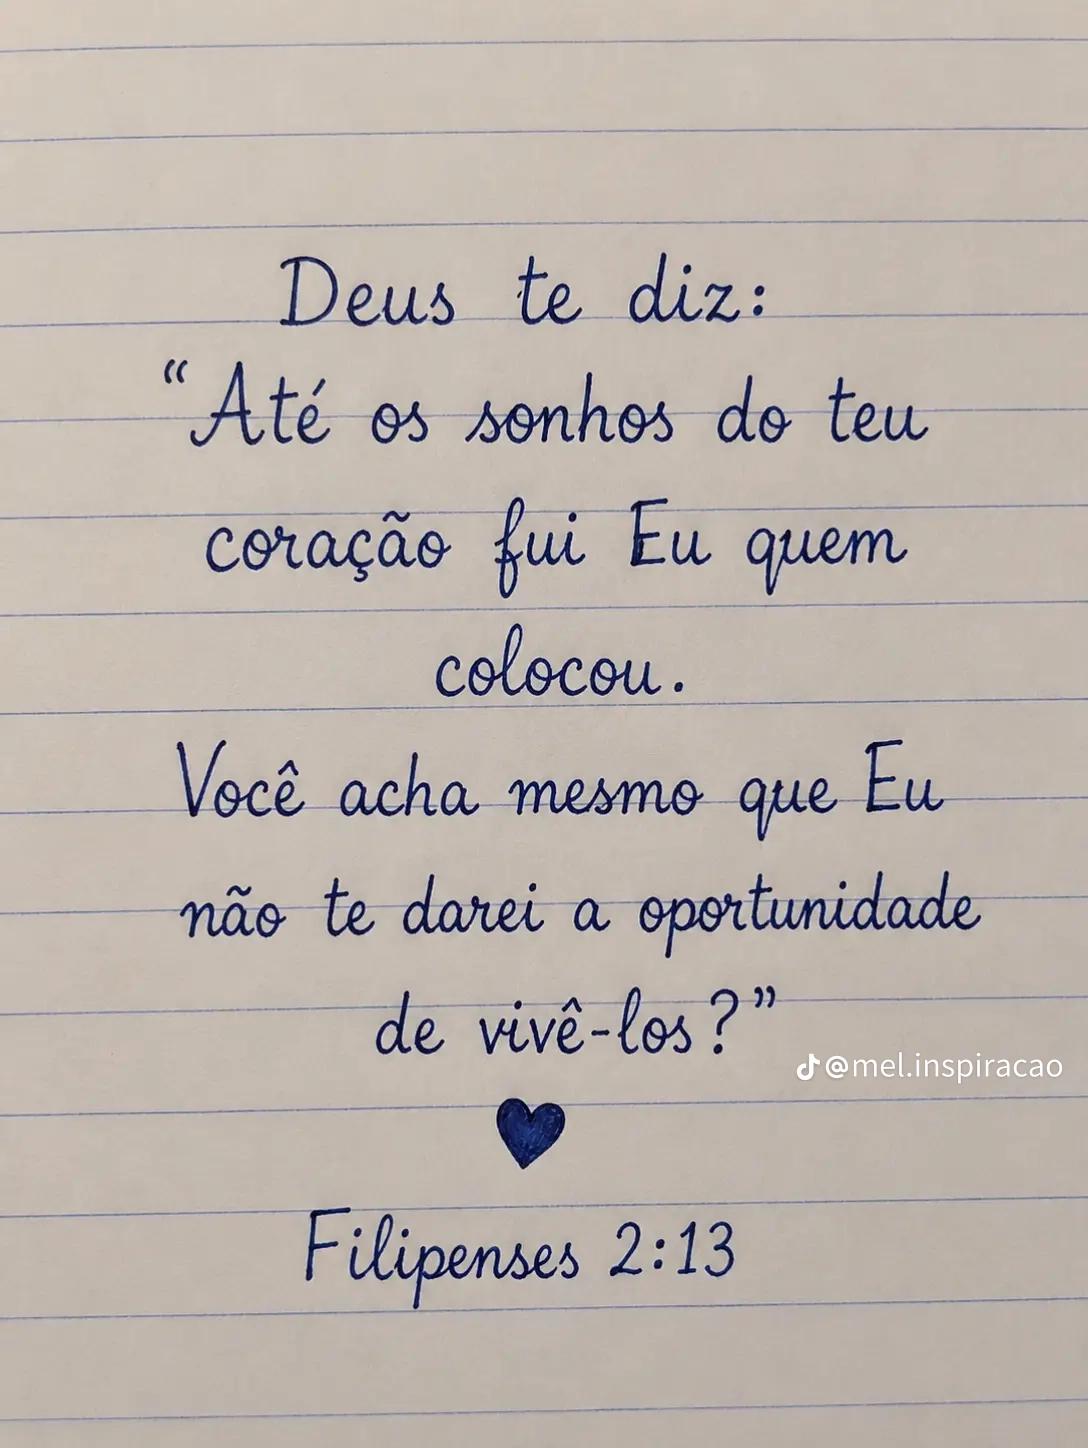 Deus te diz:
“Até os sonhos do teu
coração fui Eu quem
colocou.
Você acha mesmo que Eu
não te darei a oportunidade
de vivê-los?”
@mel.inspiracao
Filipenses 2:13